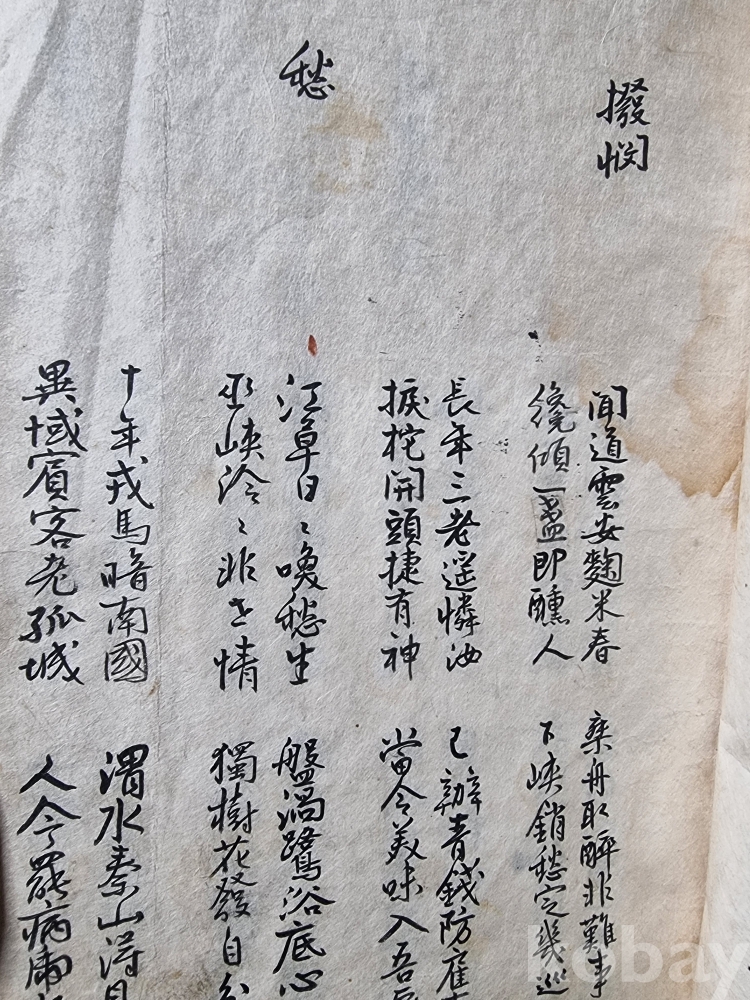 撥悶
聞道雲安麴米春 乘舟取醉非難事
纔傾一盞卽醺人 下峽銷愁定幾巡
長年三老遥憐汝 已辦青錢防雇
捩柁開頭捷有神 當令美味入吾
愁
江草日〻喚愁生 盤渦鷺浴底心
巫峽泠〻非世情 獨樹花發自分
十年戎馬暗南國 渭水秦山得見
異域賓客老孤城 人今罷病虎
kobay